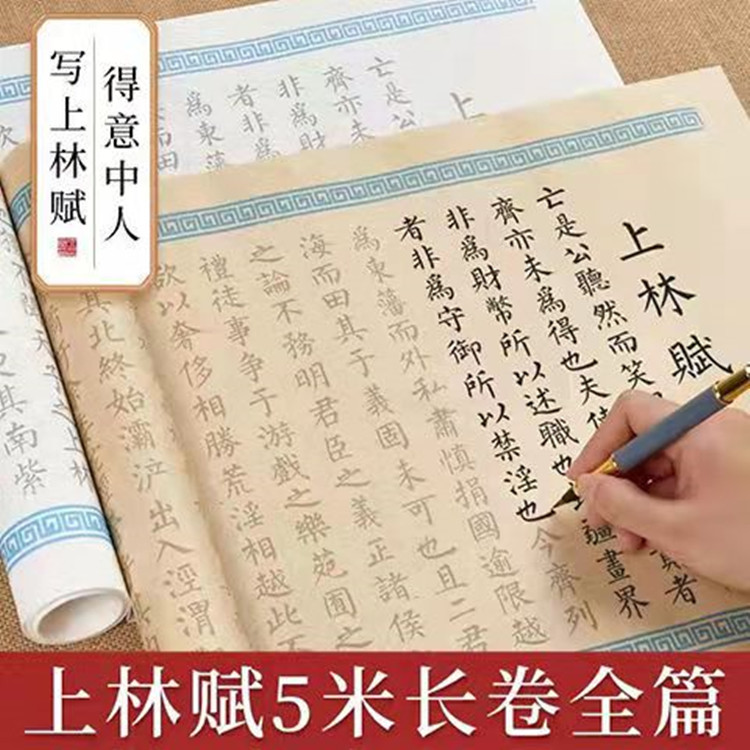 得意中人
写上林赋
上
亡是公
齊亦未
非爲財
者非爲
爲東藩
上林賦
亡是公聽然而笑
齊亦未爲得也夫使
者
非爲財幣所以述職也
疆畫界
者非爲守御所以禁淫也今齊列
爲東藩而外私肅慎捐國逾限越
海而田其于義固未可也且二君
之論不務明君臣之義正諸侯
禮徒事争于游戲之樂苑囿之
欲以奢侈相勝荒淫相越此不
其北終始灞浐出入涇渭
其南紫
上林赋5米长卷全篇